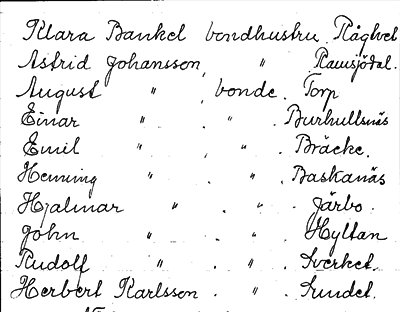 Klara Bankel bondhustru. Råghvet
Astrid Johansson, " Ramsjödal.
August " , bonde. Torp
Einar " . " . Burhullsnäs
Emil " , " . Bräcke.
Henning " . " . Baskanäs
Hjalmar " . " . Järbo.
John " . " . Hyltan
Rudolf " . " . Sverket.
Herbert Karlsson . " . Sundet.